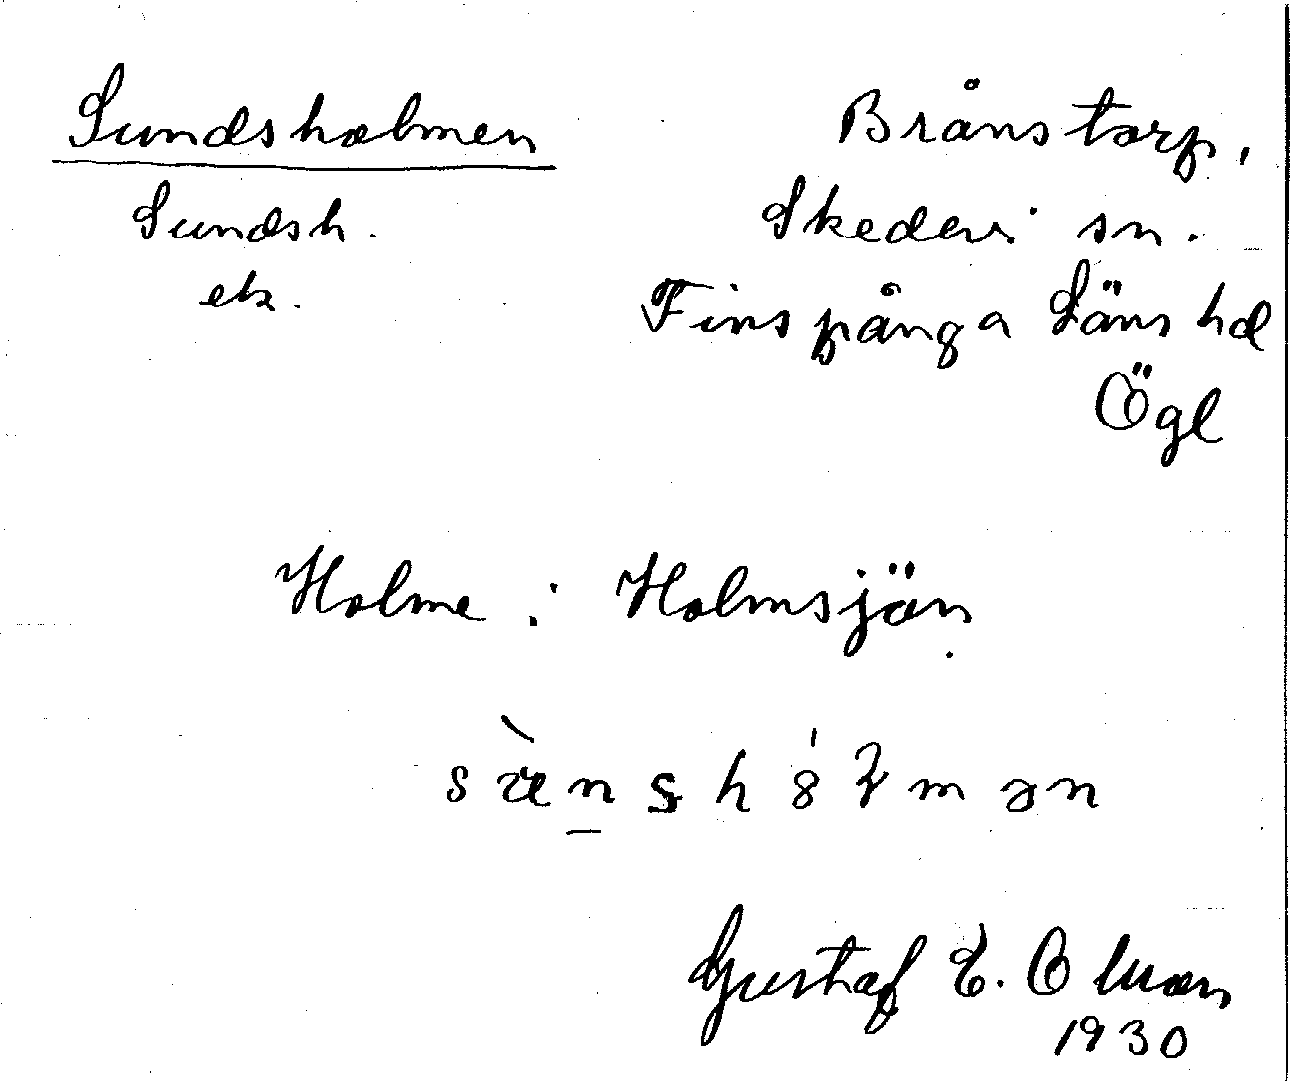 Sundsholmen
Brånstorp,
Sundsh.
Skedevi sn.
ek.
Finspånga Läns hd
Ögl
Holme i Holmsjön.
Gustaf E.
1930